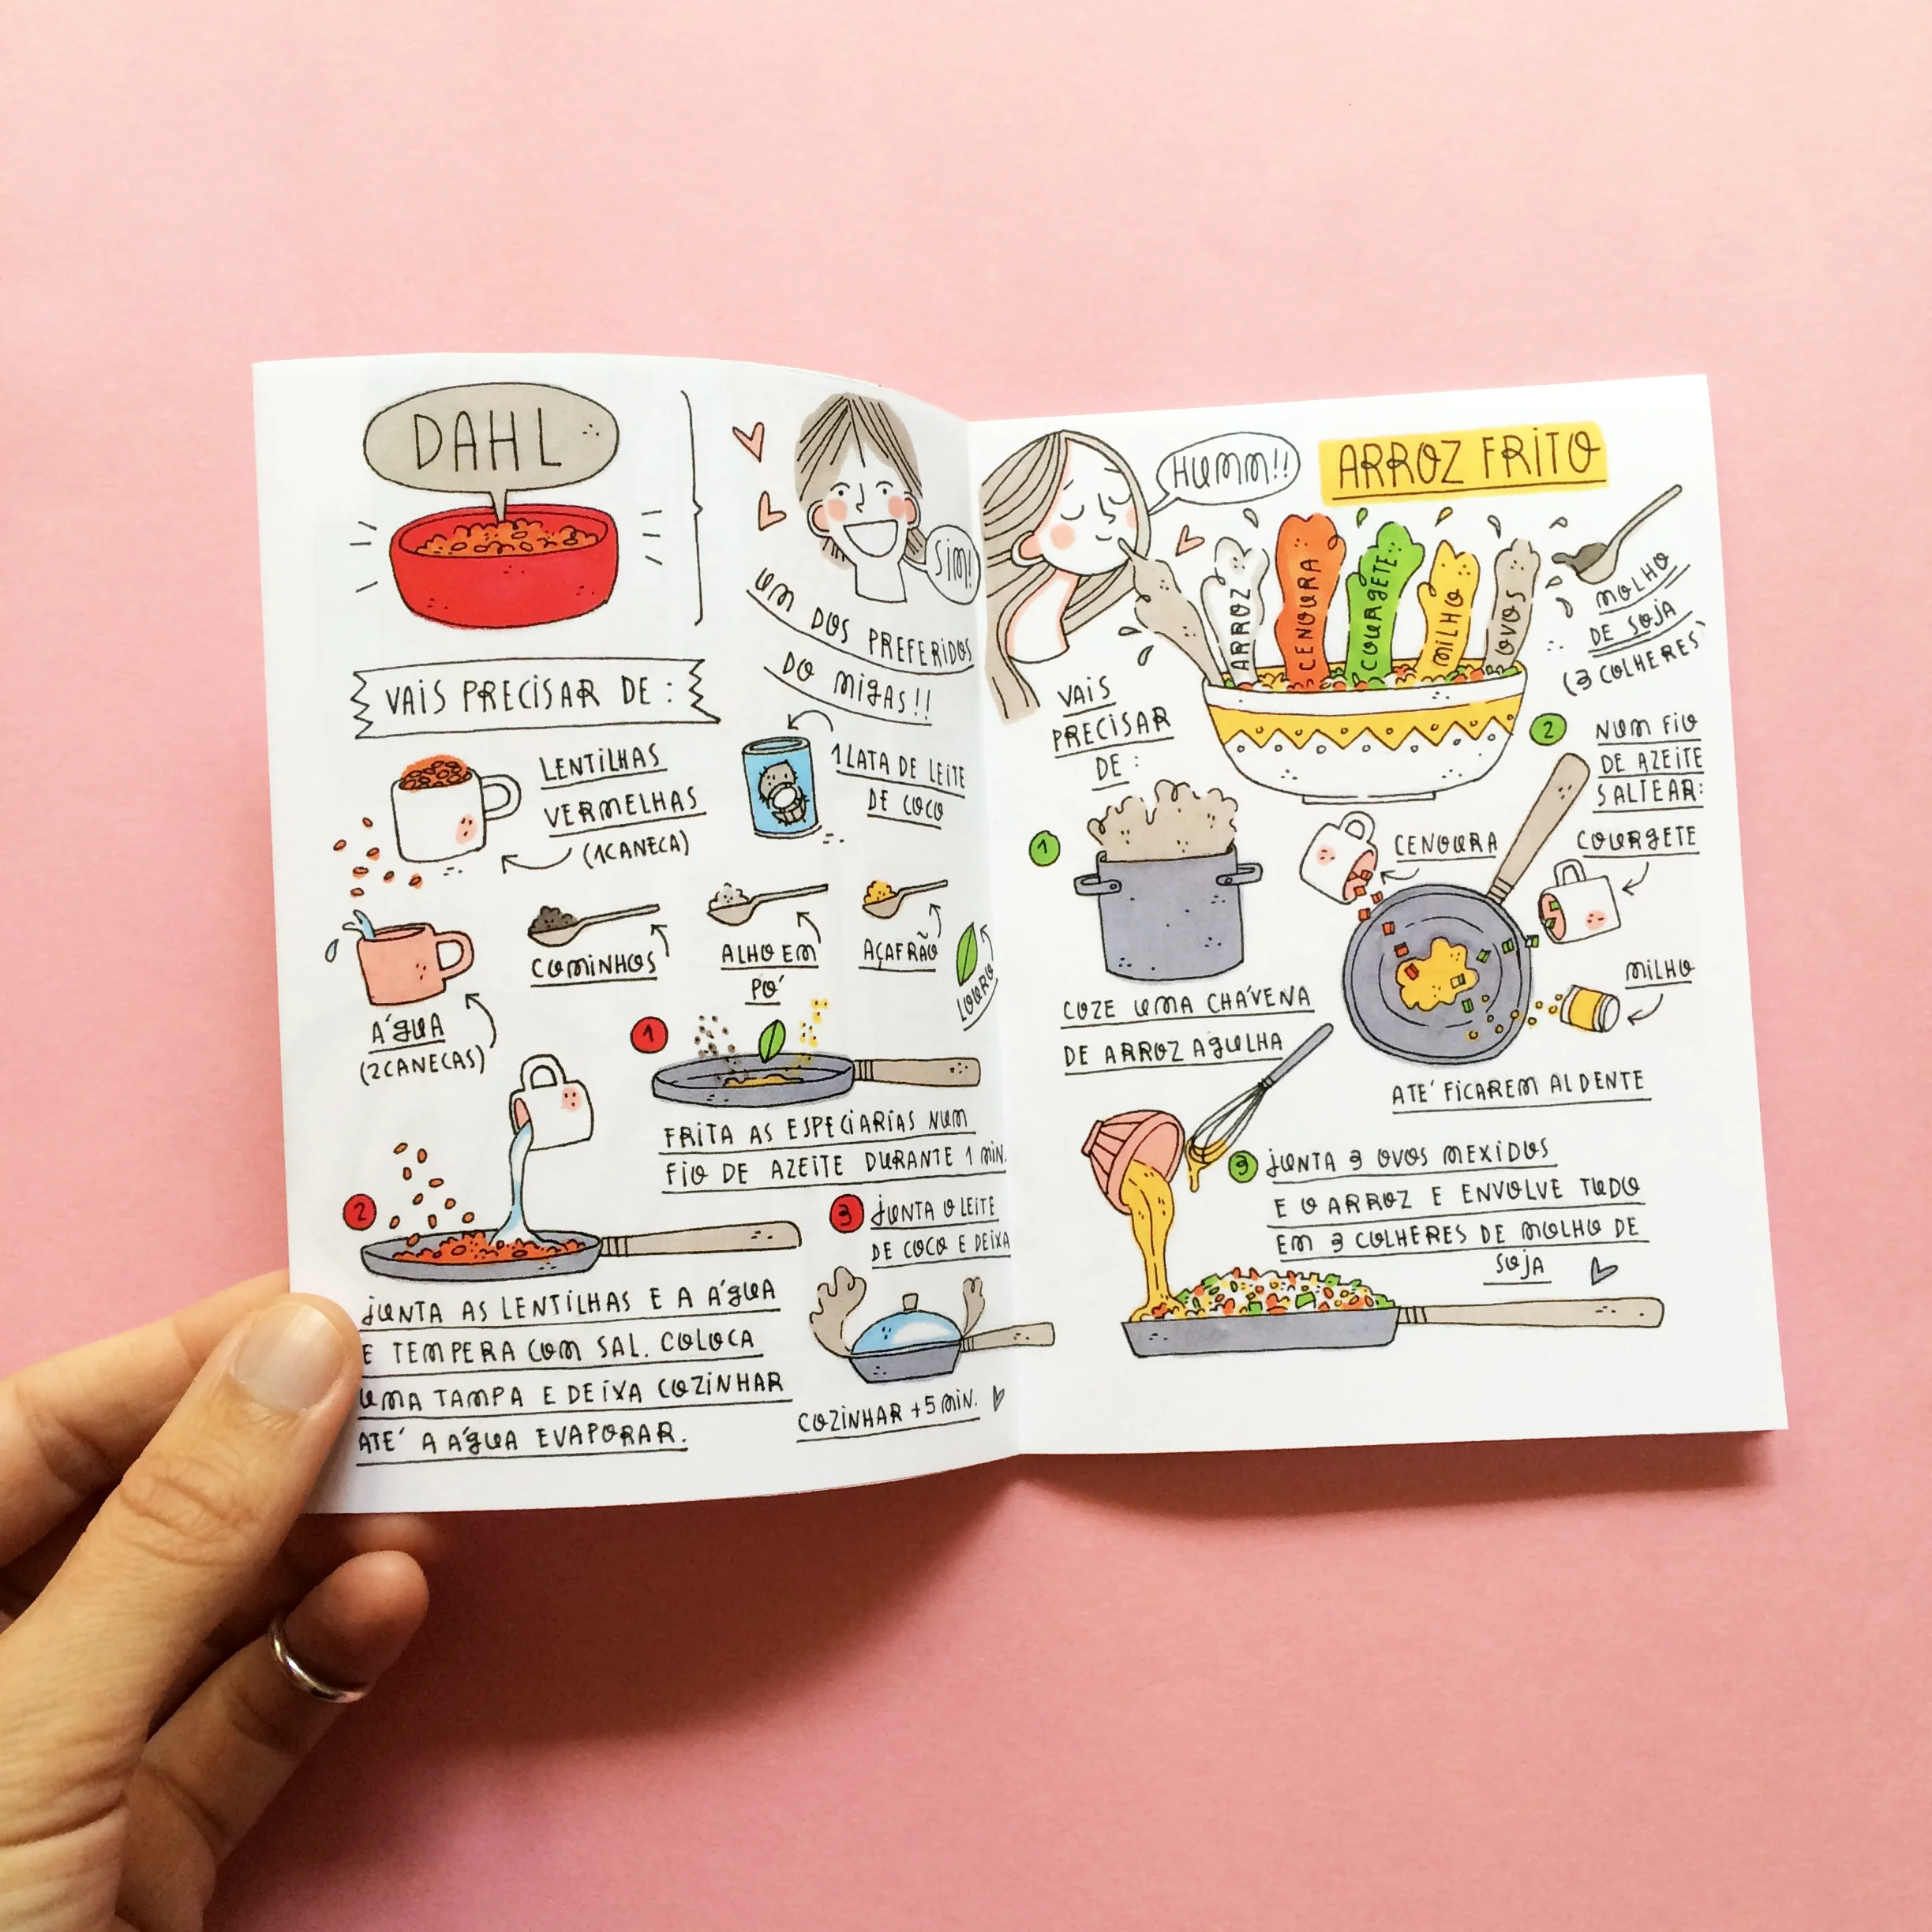 DAHL
SIM!
UM DOS PREFERIDOS
DO MIGAS!!
VAIS PRECISAR DE :
LENTILHAS
VERMELHAS
(1CANECA)
1 LATA DE LEITE
DE COCO
ÁGUA
(2CANECAS)
COMINHOS
ALHO EM
PÓ
AÇAFRÃO
LOURO
1
FRITA AS ESPECIARIAS NUM
FIO DE AZEITE DURANTE 1 MIN.
2
JUNTA AS LENTILHAS E A ÁGUA
E TEMPERA COM SAL. COLOCA
UMA TAMPA E DEIXA COZINHAR
ATÉ A ÁGUA EVAPORAR.
3
JUNTA O LEITE
DE COCO E DEIXA
COZINHAR +5 MIN.
HUMM!!
ARROZ FRITO
ARROZ
CENOURA
COURGETE
MILHO
OVOS
MOLHO
DE SOJA
(3 COLHERES)
VAIS
PRECISAR
DE :
1
COZE UMA CHÁVENA
DE ARROZ AGULHA
2
NUM FIO
DE AZEITE
SALTEAR:
CENOURA
COURGETE
MILHO
ATÉ FICAREM AL DENTE
3
JUNTA 3 OVOS MEXIDOS
E O ARROZ E ENVOLVE TUDO
EM 3 COLHERES DE MOLHO DE
SOJA